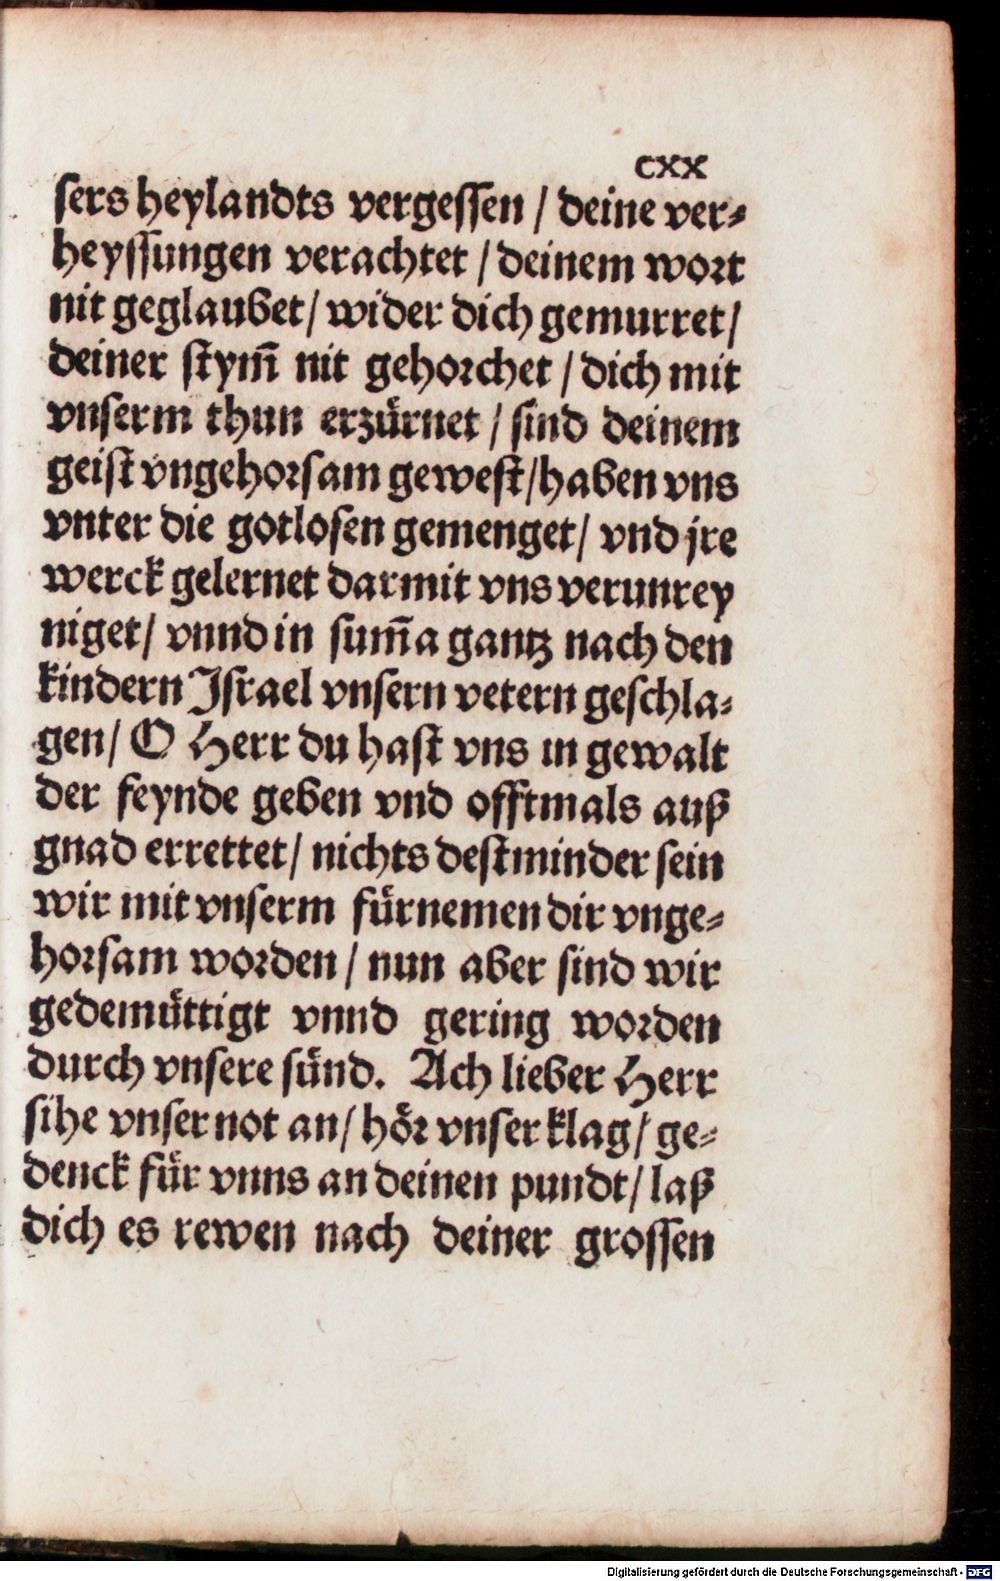 cxx
sers heylandts vergessen / deine ver⸗
heyssungen verachtet / deinem wort
nit geglaubet / wider dich gemurret /
deiner stym̄ nit gehorchet / dich mit
vnserm thun erzuͤrnet / sind deinem
geist vngehorsam gewest / haben vns
vnter die gotlosen gemenget / vnd jre
werck gelernet darmit vns verunrey
niget / vnnd in sum̄a gantz nach den
kindern Israel vnsern vetern geschla⸗
gen / O Herr du hast vns in gewalt
der feynde geben vnd offtmals auß
gnad errettet / nichts destminder sein
wir mit vnserm fuͤrnemen dir vnge⸗
horsam worden / nun aber sind wir
gedemuͤttigt vnnd gering worden
durch vnsere suͤnd. Ach lieber Herr
sihe vnser not an / hoͤr vnser klag / ge⸗
denck fuͤr vnns an deinen pundt / laß
dich es rewen nach deiner grossen
Digitalisierung gefördert durch die Deutsche Forschungsgemeinschaft - DFG